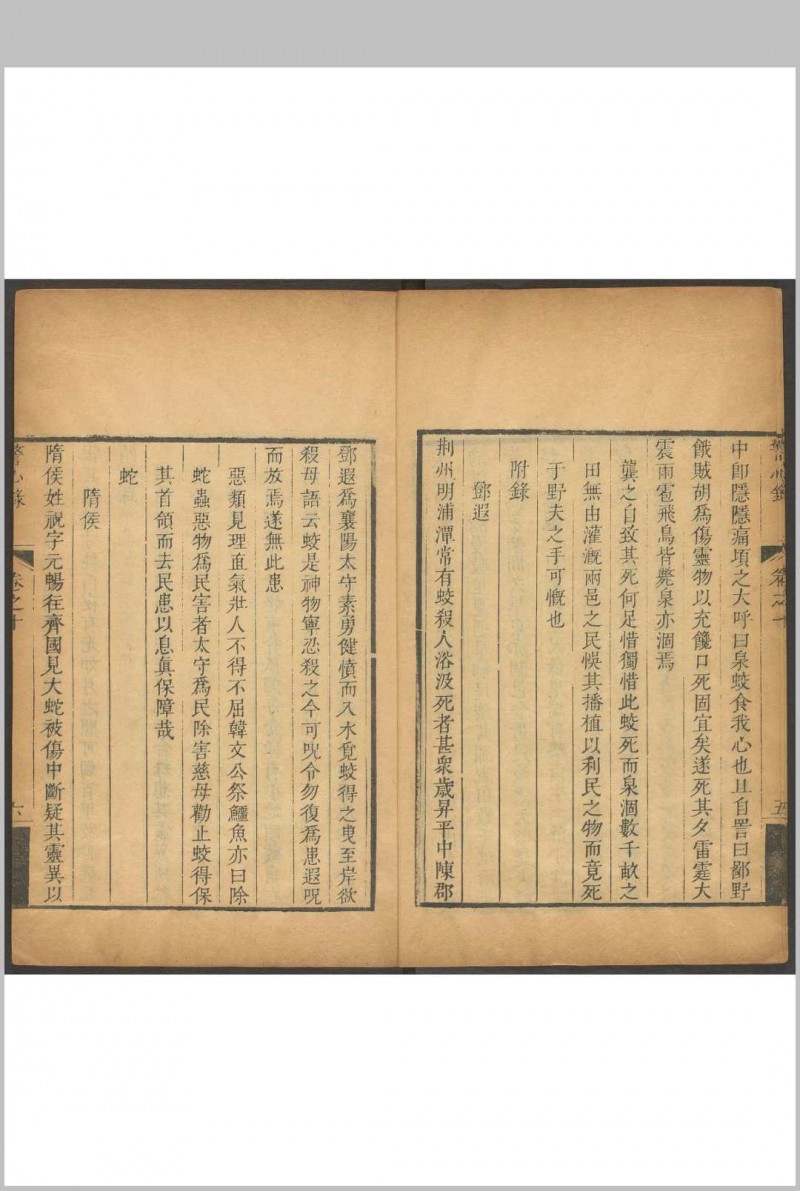 中卽隱隱痛項之大呼曰泉蛟食我心也且自詈曰鄙野
餓賊胡爲傷靈物以充饞口死固宜矣遂死其夕雷霆大
震雨雹飛鳥皆斃泉亦涸焉
龔之自致其死何足惜獨惜此蛟死而泉涸數千畝之
田無由灌漑兩邑之民悞其播植以利民之物而竟死
于野夫之手可慨也
附錄
鄧遐
荆州明浦潭常有蛟殺人浴汲死者甚衆歲昇平中陳郡
鄧遐爲襄陽太守素勇健憤而入水覓蛟得之曳至岸欲
殺母語云蛟是神物寧忍殺之今可呪令勿復爲患遐呪
而放焉遂無此患
惡類見理直氣壯人不得不屈韓文公祭鱷魚亦曰除
蛇蟲惡物爲民害者太守爲民除害慈母勸止蛟得保
其首領而去民患以息眞保障哉
蛇
隋侯
隋侯姓祝字元暢往齊國見大蛇被傷中斷疑其靈異以
卷之十
六